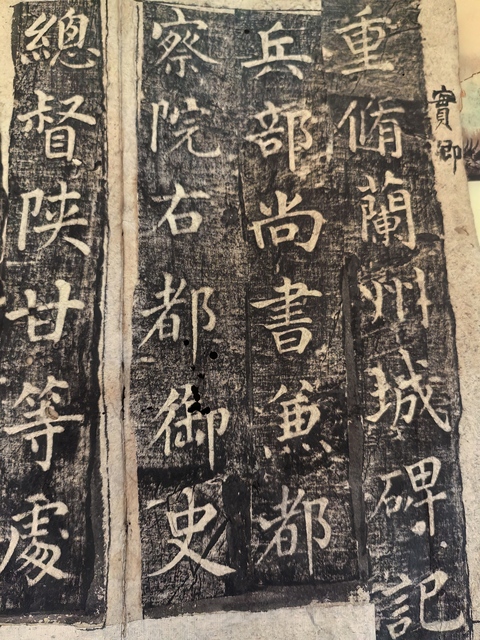 重脩蘭州城碑記
兵部尚書兼都
察院右都御史
總督陝甘等處
實卿